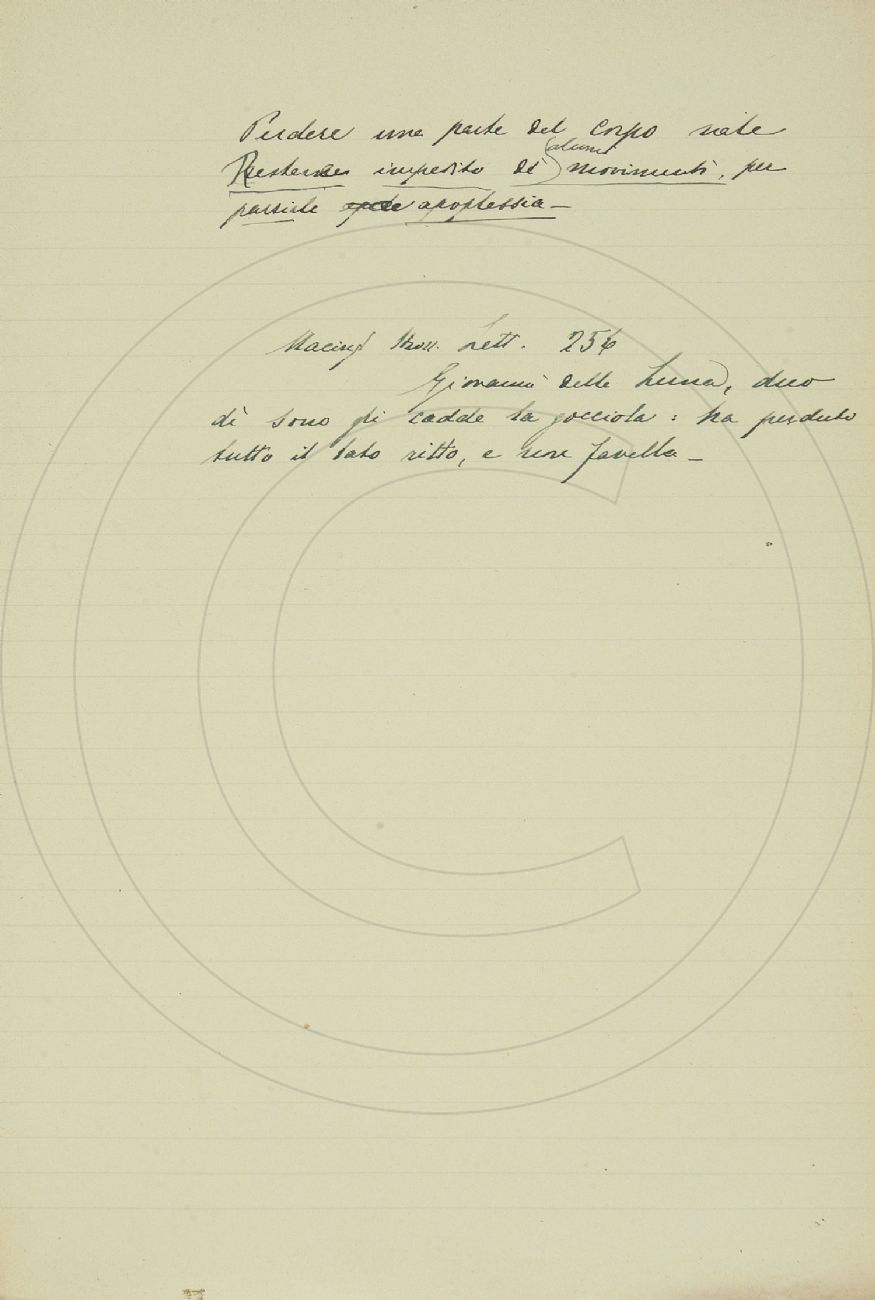 Perdere una parte del corpo vale
Restare impedito di alcuni movimenti, per
parziale apoplessia —
Macing. Strozz. Lett. 256
Giovanni della Luna, duo
dì sono gli cadde la gocciola : ha perduto
tutto il lato ritto, e non favella —